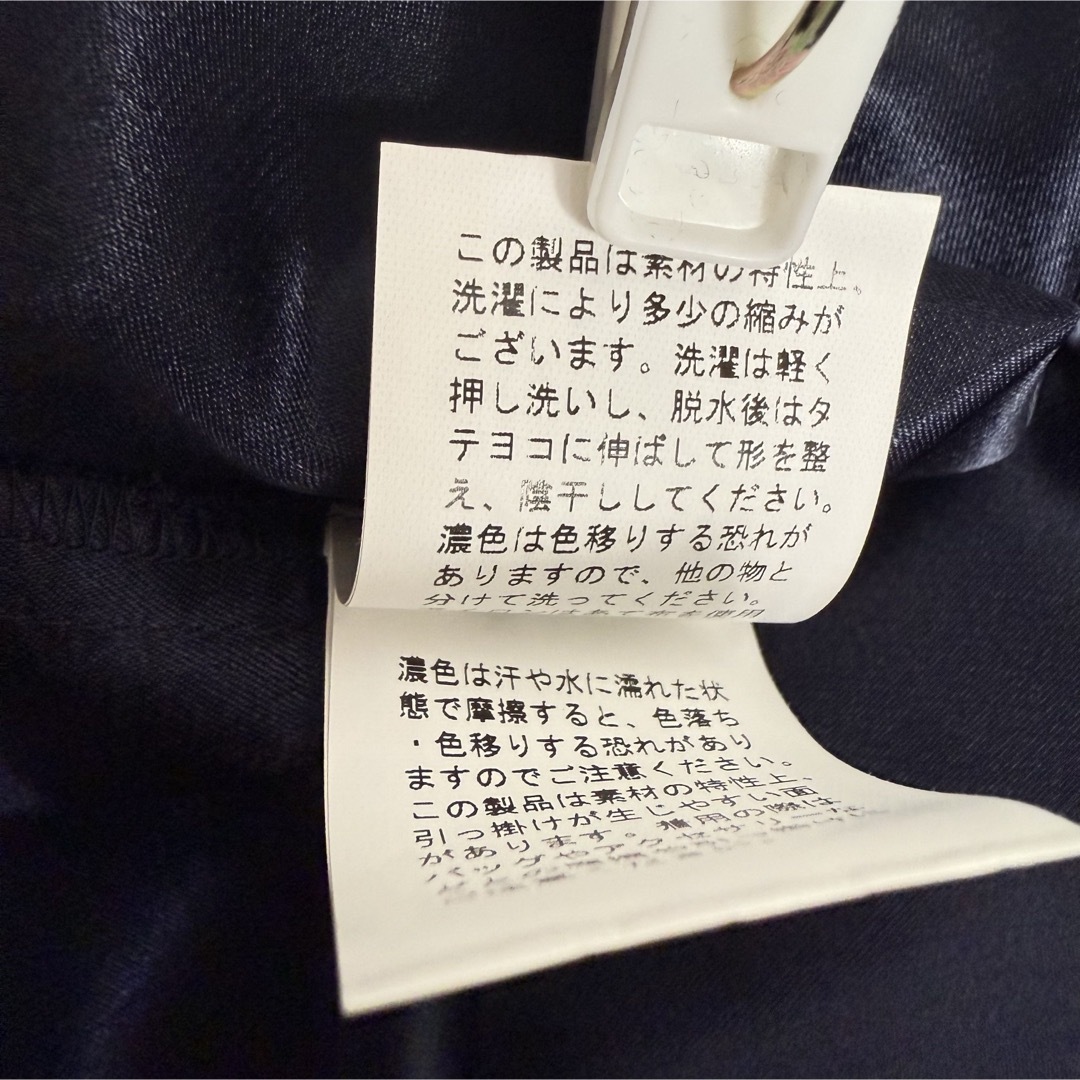 この製品は素材の特性上、
洗濯により多少の縮みが
ございます。洗濯は軽く
押し洗いし、脱水後はタ
テヨコに伸ばして形を整
え、陰干ししてください。
濃色は色移りする恐れが
ありますので、他の物と
分けて洗ってください。
濃色は汗や水に濡れた状
態で摩擦すると、色落ち
・色移りする恐れがあり
ますのでご注意ください。
この製品は素材の特性上、
引っ掛けが生じやすい面
があります。着用の際は
バッグやアクセサリーな